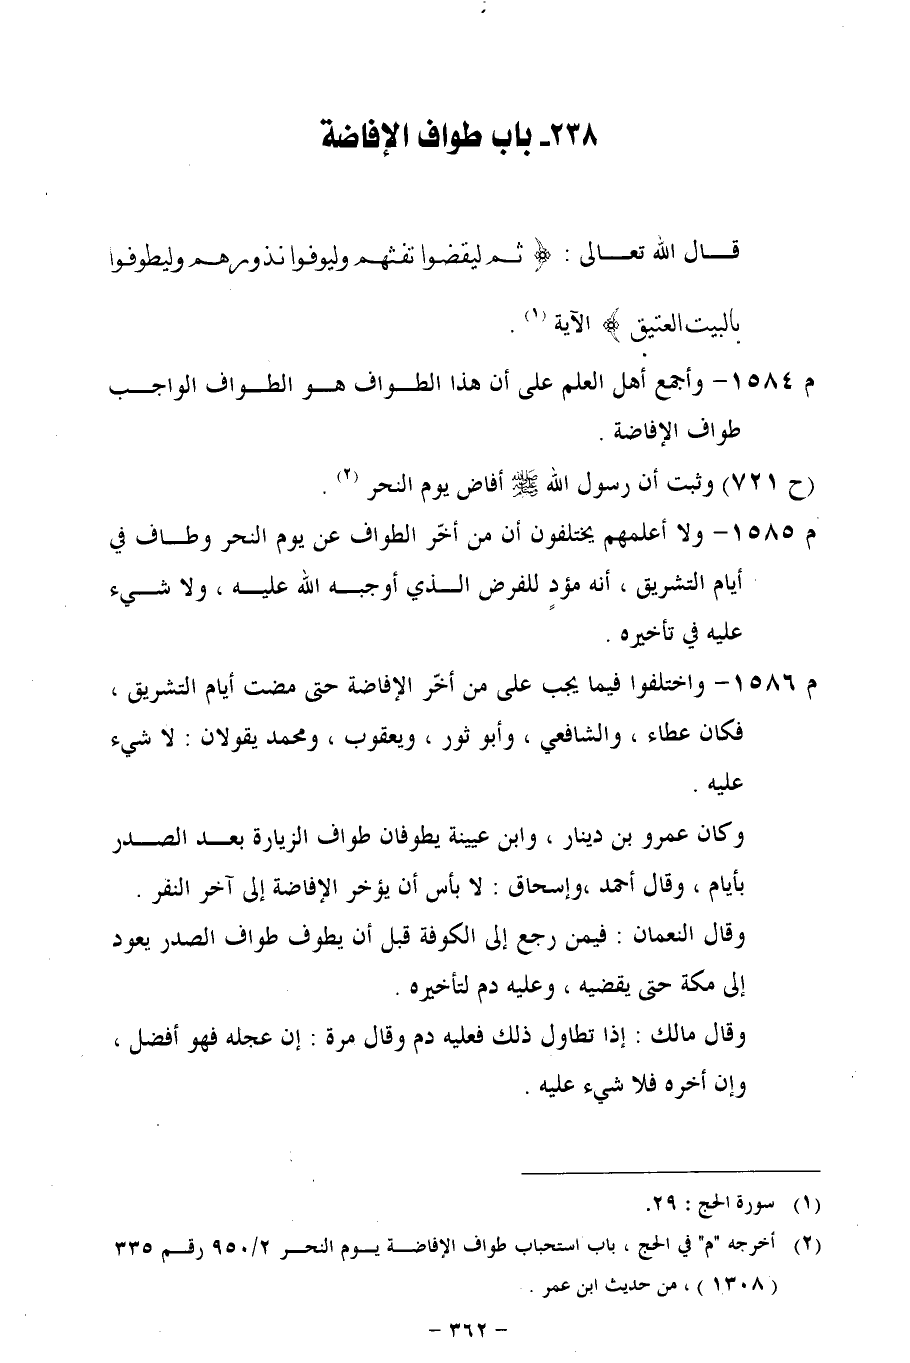 ٢٣٨ـ باب طواف الإفاضة
قـــال الله تعـــالى : ﴿ ثـم ليقضوا تفثهـم وليوفوا نذورهـم وليطوفوا
بالبيت العتيق ﴾ الآية (١) .
م ١٥٨٤– وأجمع أهل العلم على أن هذا الطـواف هـو الطـواف الواجـب
طواف الإفاضة .
(ح ٧٢١) وثبت أن رسول الله ﷺ أفاض يوم النحر (٢) .
م ١٥٨٥– ولا أعلمهم يختلفون أن من أخّر الطواف عن يوم النحر وطـاف في
أيام التشريق ، أنه مؤدٍ للفرض الـذي أوجبـه الله عليـه ، ولا شـيء
عليه في تأخيره .
م ١٥٨٦– واختلفوا فيما يجب على من أخّر الإفاضة حتى مضت أيام التشريق ،
فكان عطاء ، والشافعي ، وأبو ثور ، ويعقوب ، ومحمد يقولان : لا شيء
عليه .
وكان عمرو بن دينار ، وابن عيينة يطوفان طواف الزيارة بعـد الصـدر
بأيام ، وقال أحمد ،وإسحاق : لا بأس أن يؤخر الإفاضة إلى آخر النفر .
وقال النعمان : فيمن رجع إلى الكوفة قبل أن يطوف طواف الصدر يعود
إلى مكة حتى يقضيه ، وعليه دم لتأخيره .
وقال مالك : إذا تطاول ذلك فعليه دم وقال مرة : إن عجله فهو أفضل ،
وإن أخره فلا شيء عليه .
(١) سورة الحج : ٢٩.
(٢) أخرجه "م" في الحج ، باب استحباب طواف الإفاضـة يـوم النحـر ٩٥٠/٢ رقـم ٣٣٥
(١٣٠٨) ، من حديث ابن عمر .
– ٣٦٢ –